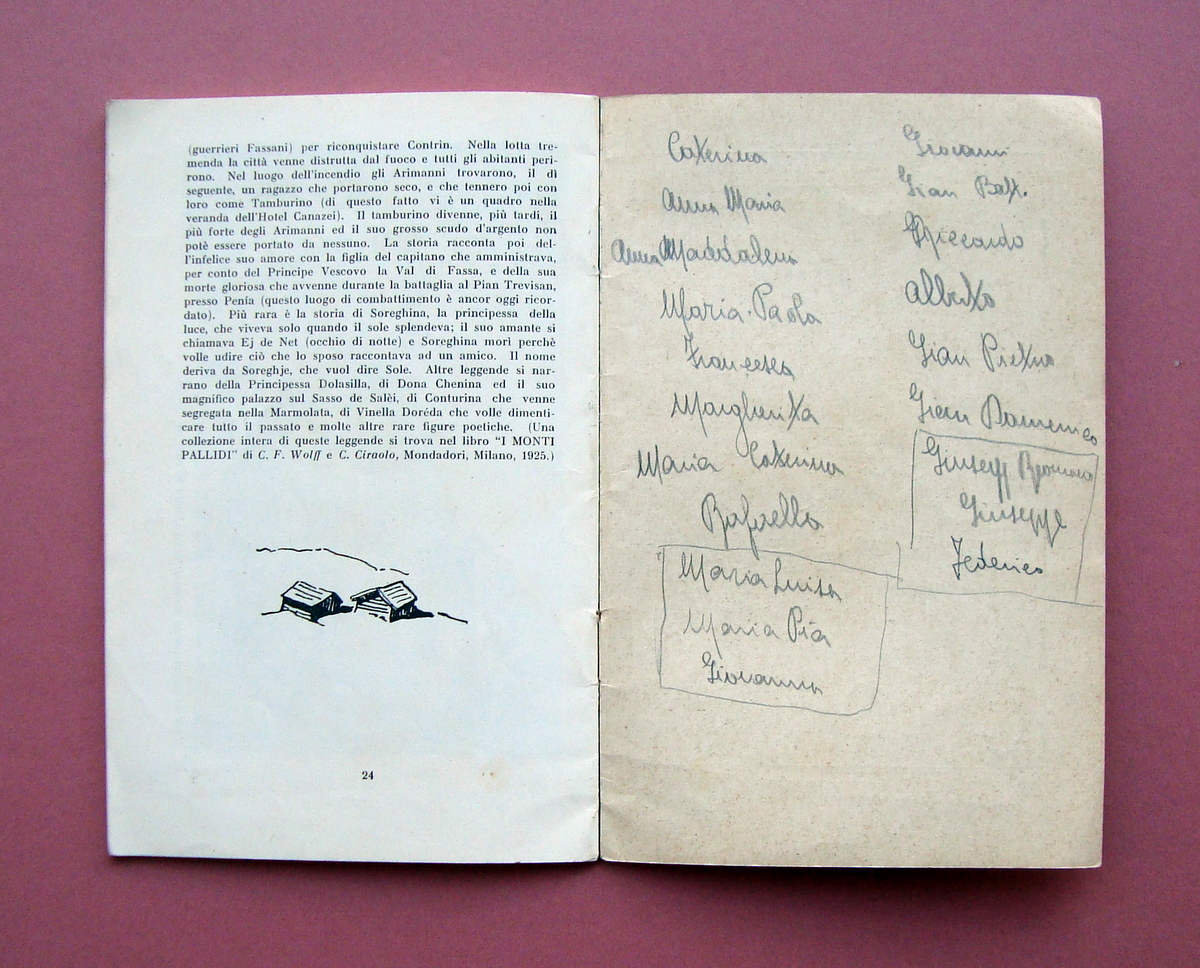 (guerrieri Fassani) per riconquistare Contrin. Nella lotta tre-
menda la città venne distrutta dal fuoco e tutti gli abitanti peri-
rono. Nel luogo dell'incendio gli Arimanni trovarono, il dì
seguente, un ragazzo che portarono seco, e che tennero poi con
loro come Tamburino (di questo fatto vi è un quadro nella
veranda dell'Hotel Canazei). Il tamburino divenne, più tardi, il
più forte degli Arimanni ed il suo grosso scudo d'argento non
potè essere portato da nessuno. La storia racconta poi del-
l'infelice suo amore con la figlia del capitano che amministrava,
per conto del Principe Vescovo la Val di Fassa, e della sua
morte gloriosa che avvenne durante la battaglia al Pian Trevisan,
presso Penía (questo luogo di combattimento è ancor oggi ricor-
dato). Più rara è la storia di Soreghina, la principessa della
luce, che viveva solo quando il sole splendeva; il suo amante si
chiamava Ej de Net (occhio di notte) e Soreghina morì perchè
volle udire ciò che lo sposo raccontava ad un amico. Il nome
deriva da Soreghje, che vuol dire Sole. Altre leggende si nar-
rano della Principessa Dolasilla, di Dona Chenina ed il suo
magnifico palazzo sul Sasso de Salèi, di Conturina che venne
segregata nella Marmolata, di Vinella Doréda che volle dimenti-
care tutto il passato e molte altre rare figure poetiche. (Una
collezione intera di queste leggende si trova nel libro "I MONTI
PALLIDI" di C. F. Wolff e C. Ciraolo, Mondadori, Milano, 1925.)
24
Caterina
Anna Maria
Anna Maddalena
Maria-Paola
Francesca
Margherita
Maria Caterina
Rafaella
Maria Luisa
Maria Pia
Giovanna
Giovanni
Gian Batt.
Riccardo
Alberto
Gian Pietro
Gian Domenico
Giusepp
Giuseppe
Federico